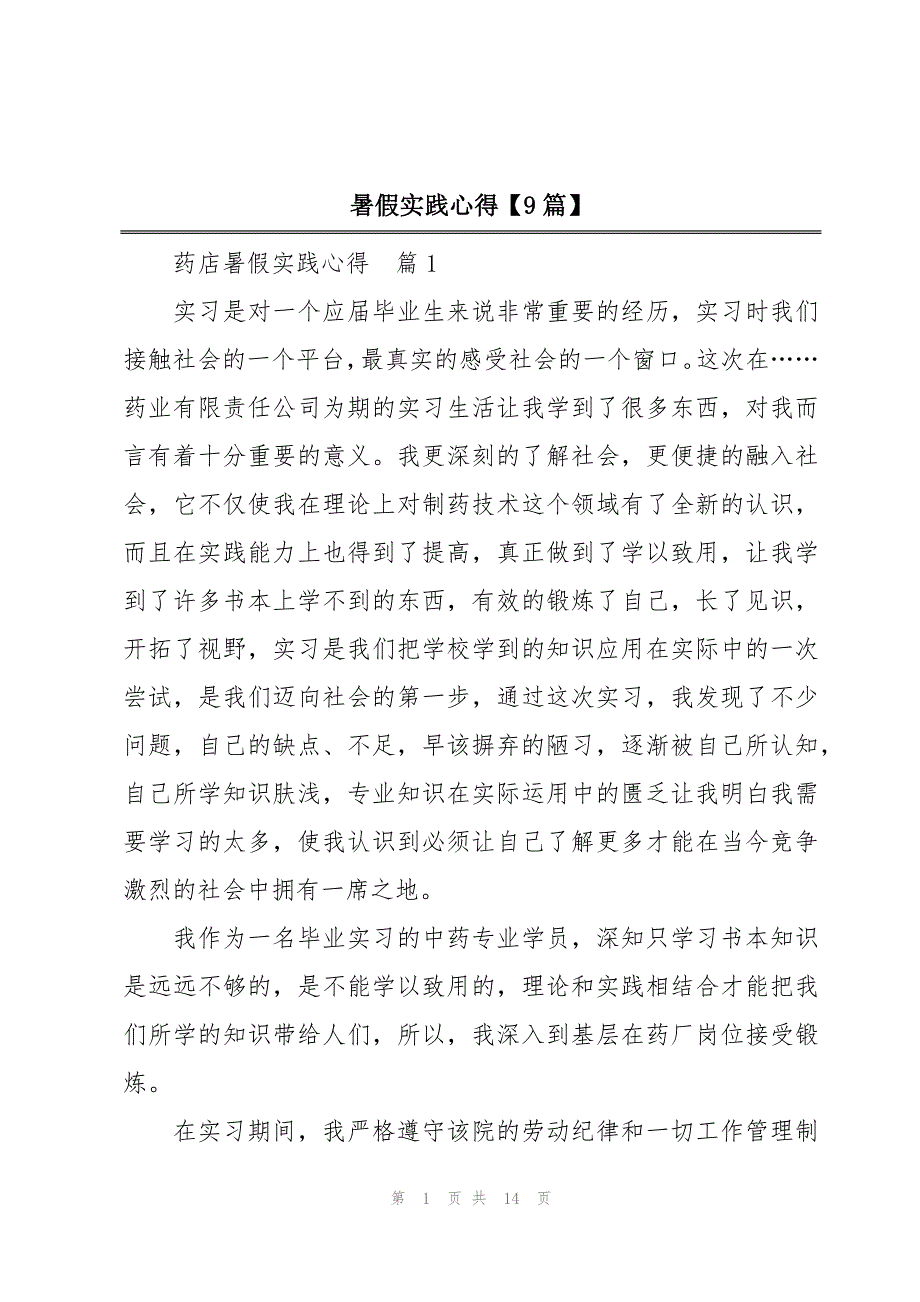 暑假实践心得【9 篇】
药店暑假实践心得　篇 1
实习是对一个应届毕业生来说非常重要的经历，实习时我们
接触社会的一个平台，最真实的感受社会的一个窗口。这次在……
药业有限责任公司为期的实习生活让我学到了很多东西，对我而
言有着十分重要的意义。我更深刻的了解社会，更便捷的融入社
会，它不仅使我在理论上对制药技术这个领域有了全新的认识，
而且在实践能力上也得到了提高，真正做到了学以致用，让我学
到了许多书本上学不到的东西，有效的锻炼了自己，长了见识，
开拓了视野，实习是我们把学校学到的知识应用在实际中的一次
尝试，是我们迈向社会的第一步，通过这次实习，我发现了不少
问题，自己的缺点、不足，早该摒弃的陋习，逐渐被自己所认知，
自己所学知识肤浅，专业知识在实际运用中的匮乏让我明白我需
要学习的太多，使我认识到必须让自己了解更多才能在当今竞争
激烈的社会中拥有一席之地。
我作为一名毕业实习的中药专业学员，深知只学习书本知识
是远远不够的，是不能学以致用的，理论和实践相结合才能把我
们所学的知识带给人们，所以，我深入到基层在药厂岗位接受锻
炼。
在实习期间，我严格遵守该院的劳动纪律和一切工作管理制
第 1 页 共 14 页